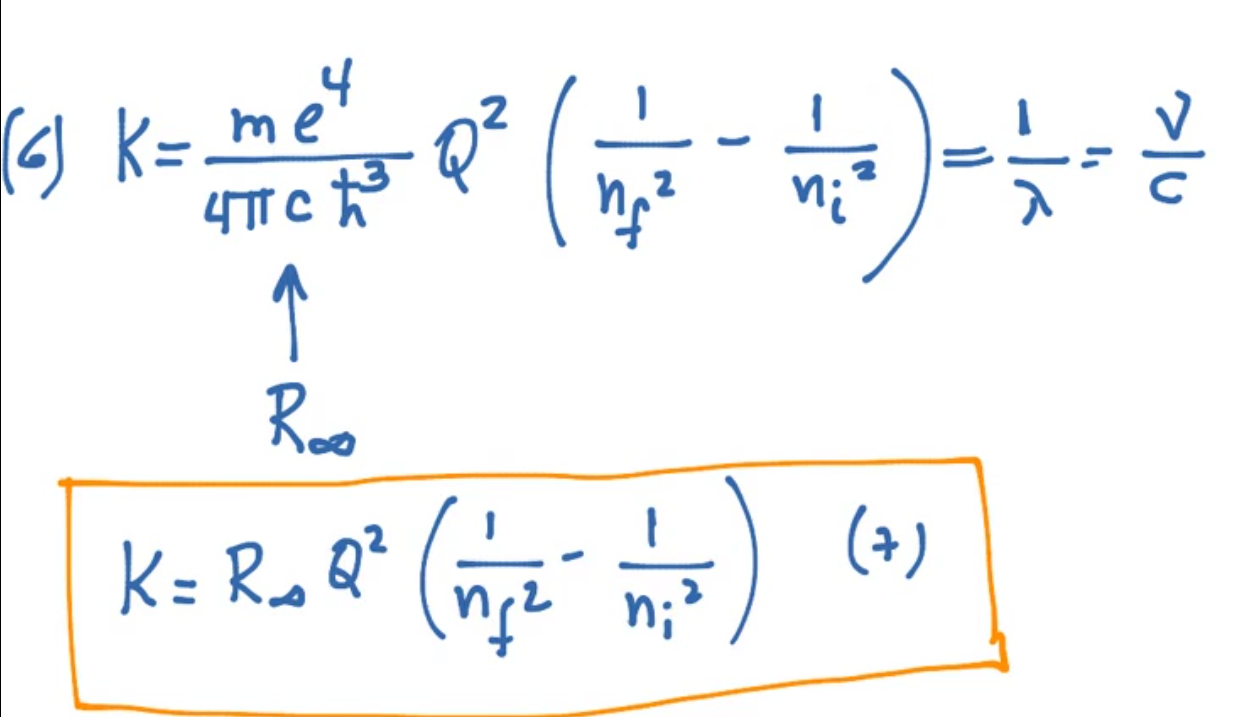 (6) K = me⁴/4πcħ³ Q² (1/n_f² - 1/n_i²) = 1/λ = ν/c
↑
R∞
K = R∞ Q² (1/n_f² - 1/n_i²) (7)